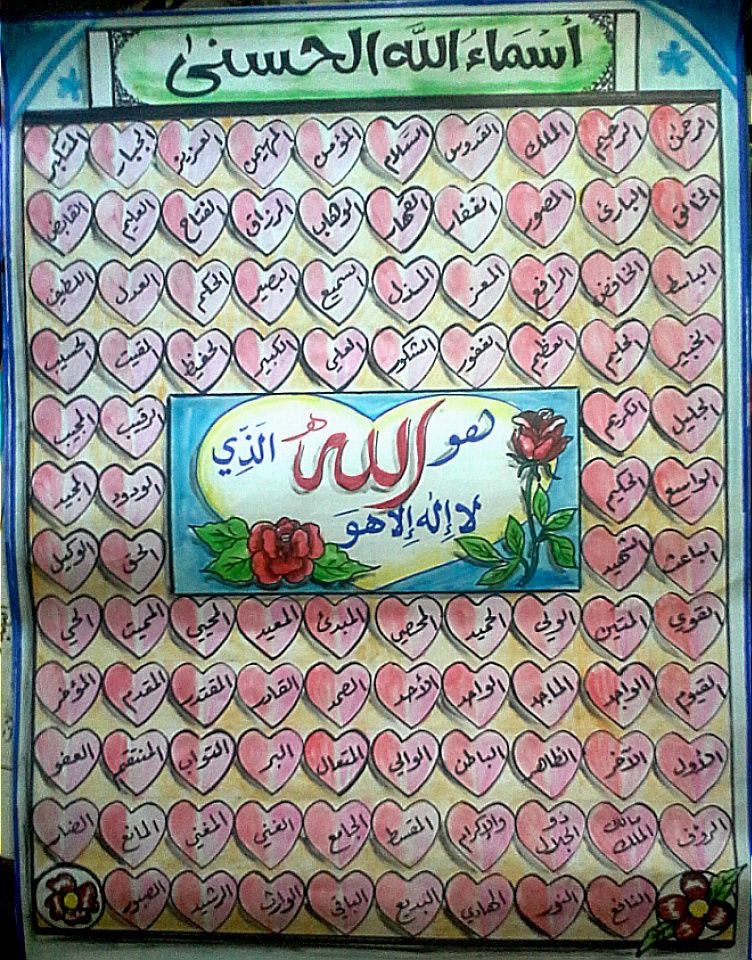 أسماء الله الحسنى
الرحمن الرحيم الملك القدوس السلام المؤمن المهيمن العزيز الجبار المتكبر
الخالق البارئ المصور الغفار القهار الوهاب الرزاق الفتاح العليم القابض
الباسط الخافض الرافع المعز المذل السميع البصير الحكم العدل اللطيف
الخبير الحليم العظيم الغفور الشكور العلي الكبير الحفيظ المقيت الحسيب
الجليل الكريم الرقيب المجيب
الواسع الحكيم الودود المجيد
الباعث الشهيد الحق الوكيل
هو الله الَذِي
لا إِلٰه إِلا هوَ
القوي المتين الولي الحميد المحصي المبدئ المعيد المحيي المميت الحي
القيوم الواجد الماجد الواحد الأحد الصمد القادر المقتدر المقدم المؤخر
الأول الآخر الظاهر الباطن الوالي المتعال البر التواب المنتقم العفو
الرؤف مالك الملك ذو الجلال والإكرام المقسط الجامع الغني المغني المانع الضار
النافع النور الهادي البديع الباقي الوارث الرشيد الصبور